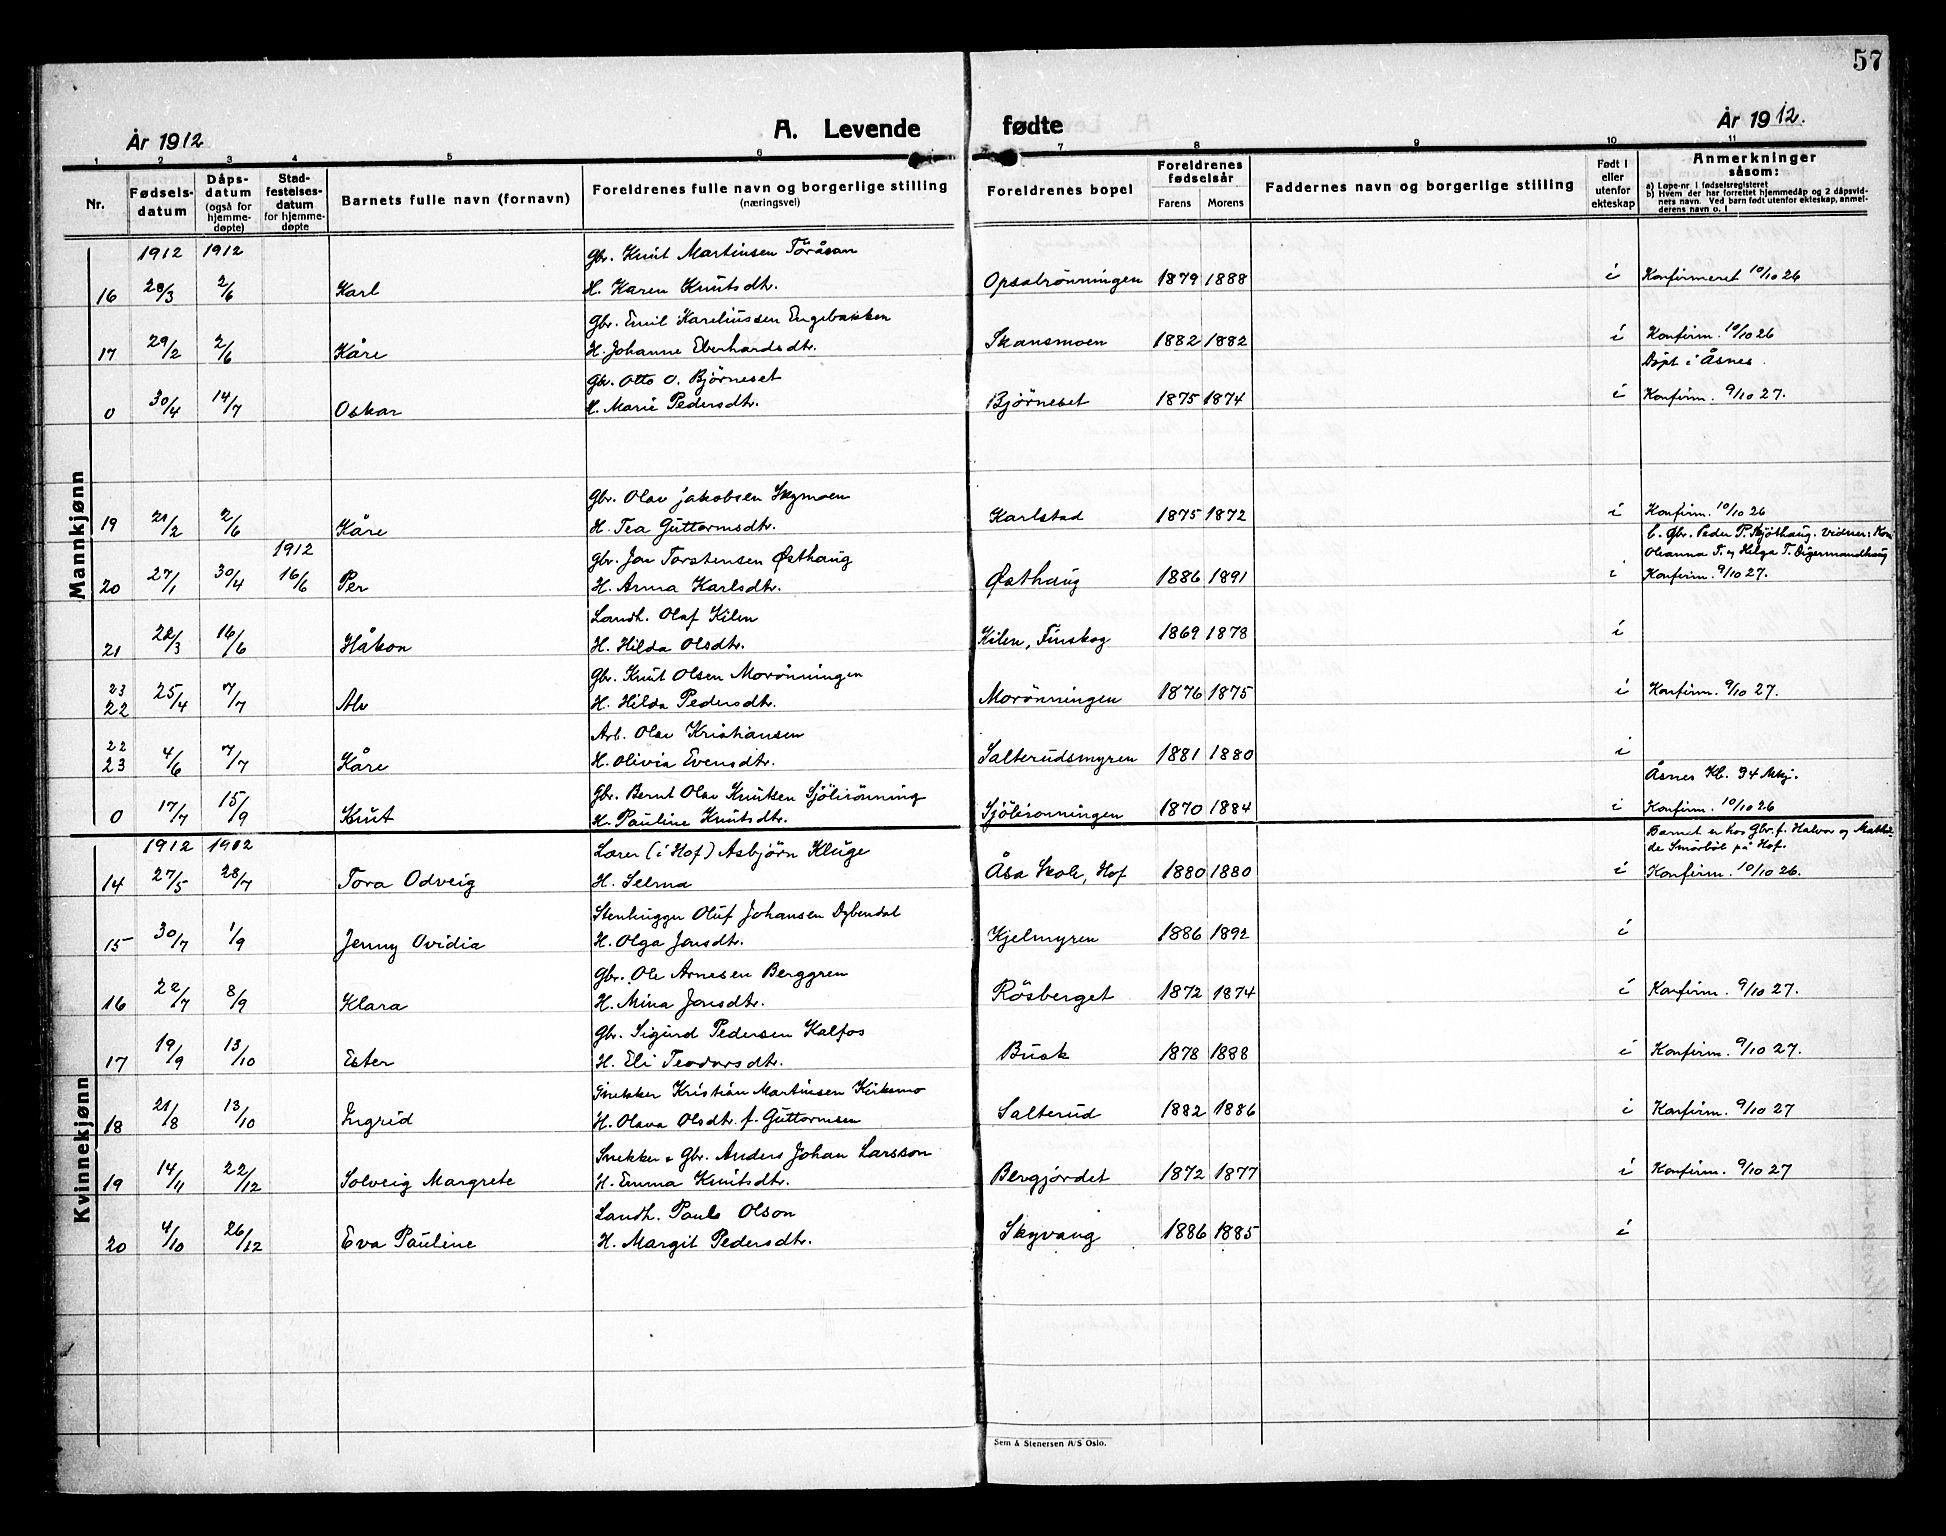 57
År 1912
A. Levende fødte
År 1912.
1 2 3 4 5 6 7 8 9 10 11
Nr.
Fødselsdatum
Dåpsdatum (også for hjemmedøpte)
Stadfestelsesdatum for hjemmedøpte
Barnets fulle navn (fornavn)
Foreldrenes fulle navn og borgerlige stilling (næringsvei)
Foreldrenes bopel
Foreldrenes fødselsår
Farens Morens
Faddernes navn og borgerlige stilling
Født i eller utenfor ekteskap
Anmerkninger såsom:
a) Løpe-nr. i fødselsregisteret
b) Hvem der har forrettet hjemmedåp og 2 dåpsvidners navn. Ved barn født utenfor ekteskap, anmelderens navn o. l
Mannkjønn
1912 1912 Gbr. Knut Martinsen Töråsen
16 28/3 2/6 Karl H. Karen Knutsdtr. Opsalrönningen 1879 1888 i Konfirmeret 10/10 26
Gbr. Emil Kareliussen Engebakken
17 29/2 2/6 Kåre H. Johanne Eberhardsdtr. Skansmoen 1882 1882 i Konfirm. 10/10 26
Döpt i Åsnes.
Gbr. Otto O. Björneset
0 30/4 14/7 Oskar H. Marie Pedersdtr. Björneset 1875 1874 i Konfirm. 9/10 27.
Gbr. Olav Jakobsen Skymoen
19 21/2 2/6 Kåre H. Tea Guttormsdtr. Karlstad 1875 1872 i Konfirm. 10/10 26
1912 Gbr. Jon Torstensen Østhaug
Gbr. Peder P. Kjöthaug. Vidner:
Oleanna T. og Helga T. Digermandhaug
20 27/1 30/4 16/6 Per H. Anna Karlsdtr. Østhaug 1886 1891 i Konfirm. 9/10 27.
Landh. Olaf Kilen
21 22/3 16/6 Håkon H. Hilda Olsdtr. Kilen, Finskog 1869 1878 i
23 Gbr. Knut Olsen Morönningen
22 25/4 7/7 Alv H. Hilda Pedersdtr. Morönningen 1876 1875 i Konfirm. 9/10 27.
22 Arb. Olav Kristiansen
23 4/6 7/7 Kåre H. Olivia Evensdtr. Salterudsmyren 1881 1880 i
Åsnes Kl. 34 Mkj.
Gbr. Bernt Olav Knutsen Sjölirönning
0 17/7 15/9 Knut H. Pauline Knutsdtr. Sjölirönningen 1870 1884 i Konfirm. 10/10 26
Kvinnekjønn
Barnet er hos Gbr. f. Halvor og Mathilde Smörböl på Hof.
1912 1912 Lærer (i Hof) Asbjörn Kluge
14 27/5 28/7 Tora Odveig H. Selma Åsa Skole, Hof 1880 1880 i Konfirm. 10/10 26.
Stenhugger Oluf Johansen Dybendal
15 30/7 1/9 Jenny Ovidia H. Olga Jonsdtr. Kjelmyren 1886 1892 i
Gbr. Ole Arnesen Berggren
16 22/7 8/9 Klara H. Mina Jonsdtr. Rösberget 1872 1874 i Konfirm. 9/10 27.
Gbr. Sigurd Pedersen Kalfos
17 19/9 13/10 Ester H. Eli Teodorsdtr. Busk 1878 1888 i Konfirm. 9/10 27.
Snekker Kristian Martinsen Kirksmo
18 21/8 13/10 Ingrid H. Olava Olsdtr. f. Guttormsen Salterud 1882 1886 i Konfirm. 9/10 27
Snekker & Gbr. Anders Johan Larsson
19 14/11 22/12 Solveig Margrete H. Emma Knutsdtr. Bergjordet 1872 1877 i Konfirm. 9/10 27
Landh. Paul Olson
20 4/10 26/12 Eva Pauline H. Margit Pedersdtr. Skyvang 1886 1885 i
Sem & Stenersen A/S Oslo.